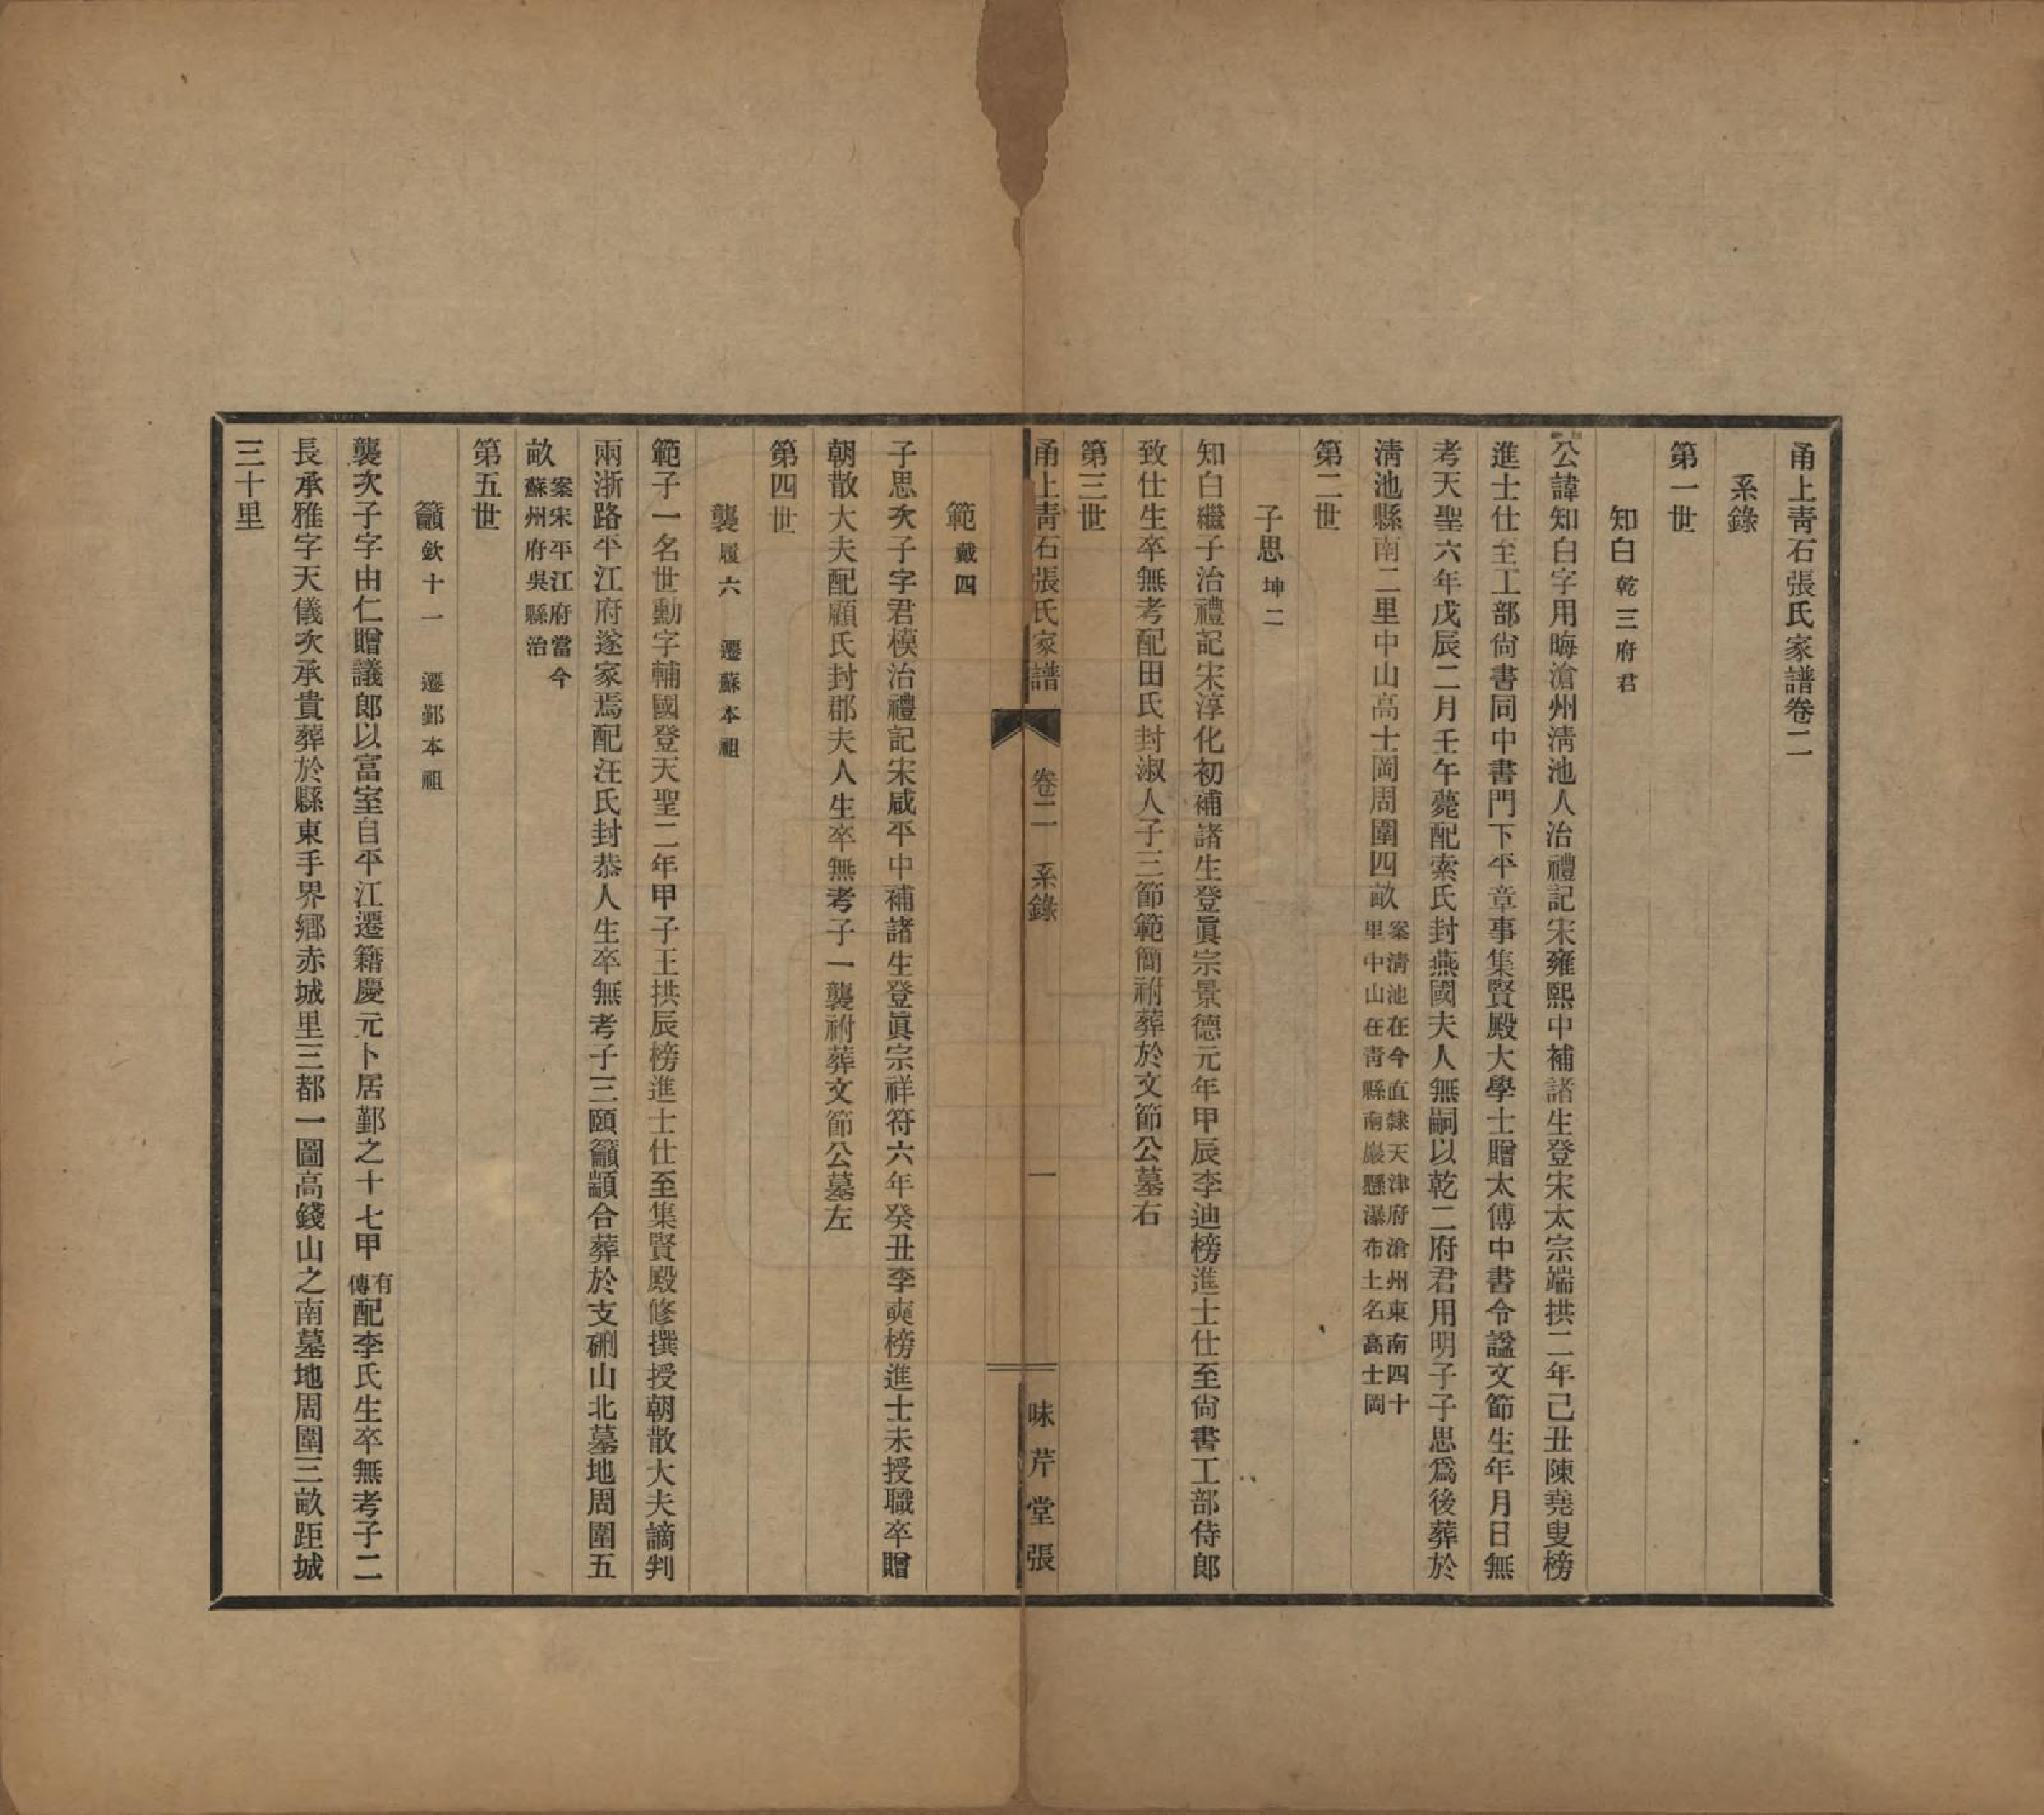 甬上靑石張氏家譜卷二
系錄
第一世
知白乾三府君
公諱知白字用晦滄州淸池人治禮記宋雍熙中補諸生登宋太宗端拱二年己丑陳堯叟榜
進士仕至工部尙書同中書門下平章事集賢殿大學士贈太傅中書令諡文節生年月日無
考天聖六年戊辰二月壬午薨配索氏封燕國夫人無嗣以乾二府君用明子子思爲後葬於
淸池縣南二里中山高士岡周圍四畝
案淸池在今直隸天津府滄州東南四十
里中山在靑縣南巖懸瀑布土名高士岡
第二世
子思坤二
知白繼子治禮記宋淳化初補諸生登眞宗景德元年甲辰李迪榜進士仕至尙書工部侍郎
致仕生卒無考配田氏封淑人子三節範簡祔葬於文節公墓右
第三世
甬上靑石張氏家譜 卷二 系錄 一 味芹堂張
範戴四
子思次子字君模治禮記宋咸平中補諸生登眞宗祥符六年癸丑李奭榜進士未授職卒贈
朝散大夫配顧氏封郡夫人生卒無考子一襲祔葬文節公墓左
第四世
襲履六 遷蘇本祖
範子一名世勳字輔國登天聖二年甲子王拱辰榜進士仕至集賢殿修撰授朝散大夫謫判
兩浙路平江府遂家焉配汪氏封恭人生卒無考子三頤籲顓合葬於支硎山北墓地周圍五
畝
案宋平江府當今
蘇州府吳縣治
第五世
籲欽十一 遷鄞本祖
襲次子字由仁贈議郎以富室自平江遷籍慶元卜居鄞之十七甲有傳配李氏生卒無考子二
長承雅字天儀次承貴葬於縣東手界鄉赤城里三都一圖高錢山之南墓地周圍三畝距城
三十里